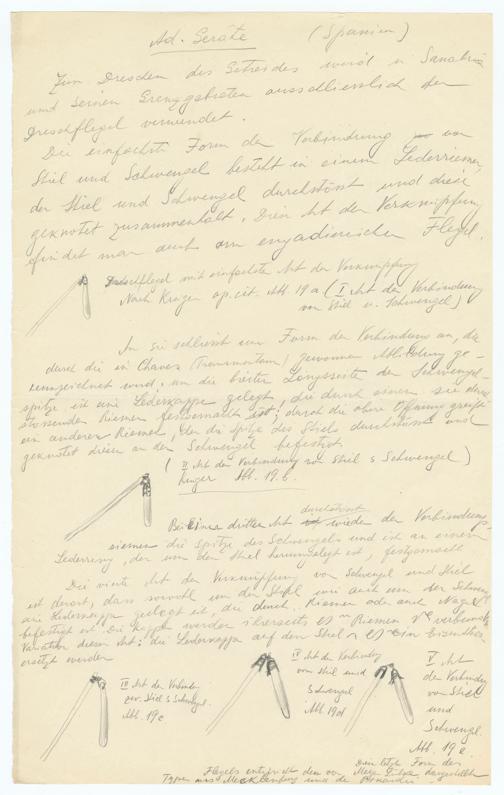 Ad. Geräte (Spanien)
Zum Dreschen des Getreides wird in Sanabria
und seinen Grenzgebieten ausschliesslich der
Dreschflegel verwendet.
Die einfachste Form der Verbindung von
Stiel und Schwengel besteht in einem Lederriemen,
der Stiel und Schwengel durchstösst und diese
geknotet zusammenhält. Diese Art der Verknüpfung
findet man auch am engadinischen Flegel.
Dreschflegel mit einfachster Art der Verknüpfung
Nach Krüger op. cit. Abb 19a (I Art der Verbindung
von Stiel u. Schwengel)
An sie schliesst eine Form der Verbindung an, die
durch die in Chaves (Transmontana) gewonnene Abbildung ge-
kennzeichnet wird, um die breite Längsseite der Schwengel-
spitze ist eine Lederkappe gelegt, die durch einen sie durch
stossenden Riemen festgemacht ist; durch die obere Öffnung greift
ein anderer Riemen, der die Spitze des Stiels durchstösst und
geknotet diesen an der Schwengel befestigt
(II Art der Verbindung von Stiel & Schwengel)
Krüger Abb. 19.b.
durchstösst
Bei einer dritten Art wieder der Verbindungs
riemen die Spitze des Schwengels und ist an einem
Lederring, der um den Stiel herumgelegt ist, festgemacht
Die vierte Art der Verknüpfung von Schwengel und Stiel
ist derart, dass sowohl um den Stiel wie auch um den Schwengel
eine Lederkappe gelegt ist, die durch Riemen oder auch Nägel
befestigt ist. Die Kappen werden ihrerseits Riemen
Variation dieser Art: die Lederkappe auf dem Stiel
ersetzt werden
III Art der Verbindung
zw. Stiel & Schwengel.
Abb. 19c
IV Art der Verbindung
von Stiel und
Schwengel
Abb 19d
V Art
der Verbindung
von Stiel
und
Schwengel.
Abb. 19e.
Diese letzte Form des
Flegels entspricht dem von dargestellten
Typen aus Mecklenburg und die